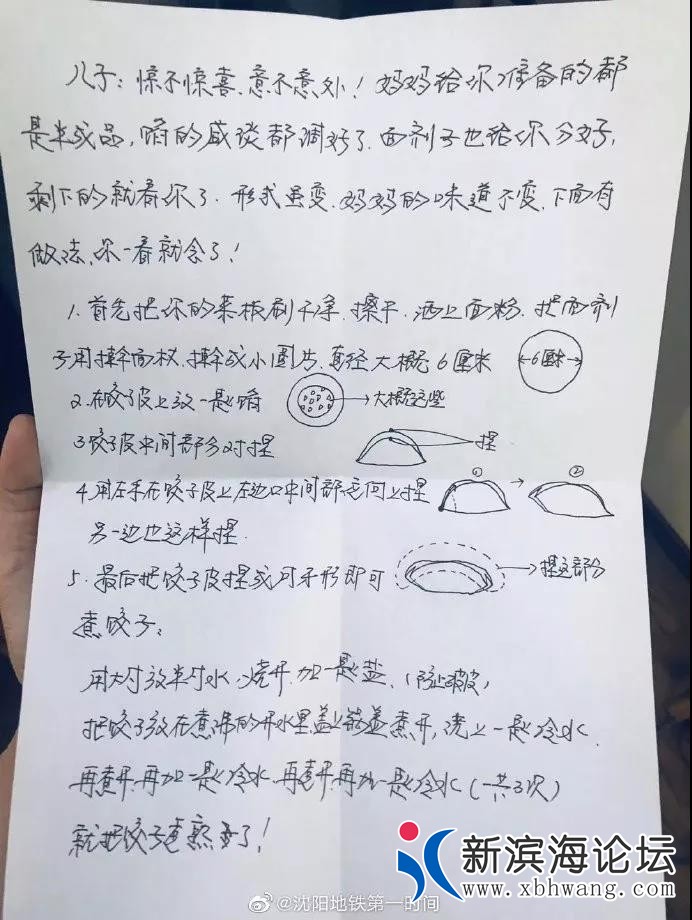 儿子：惊不惊喜、意不意外！妈妈给你准备的都
是半成品，馅的咸淡都调好了．面剂子也给你分好，
剩下的就看你了．形式虽变．妈妈的味道不变．下面有
做法、你一看就会了！
1．首先把你的菜板刷干净．擦干．洒上面粉．把面剂
子用擀面杖．擀成小圆片．直径大概6厘米
6厘米
2．在饺子皮上放一点馅
大概这些
3饺子皮中间部分对捏
捏
4．用左手在饺子皮上左边口中间部位向上捏
① ②
另一边也这样捏．
5．最后把饺子皮捏成月牙形即可
捏这部分
煮饺子：
用大锅放半锅水．烧开．加一点盐、（防止破皮）
把饺子放在煮沸的开水里盖上锅盖煮开，浇上一点冷水．
再煮开．再加一点冷水．再煮开再加一点冷水（一共3次）
就把饺子煮熟了！
新滨海论坛
www.xbhwang.com
@沈阳地铁第一时间